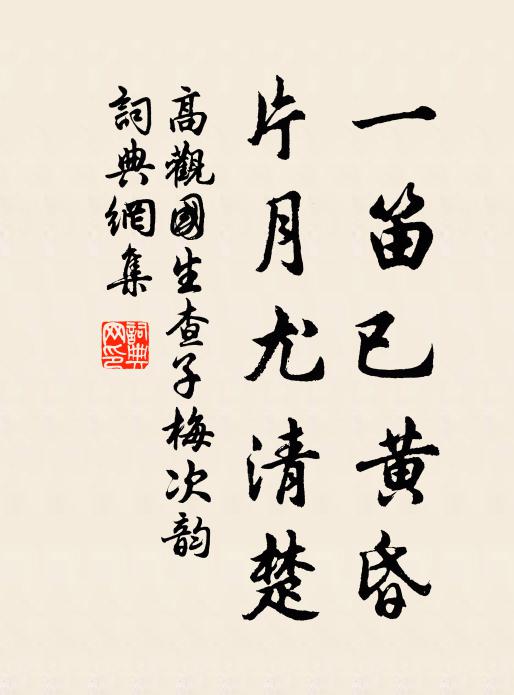 一笛已黄昏
片月尤清楚
高觀國生查子梅次韵
詞典網集
詞典網印